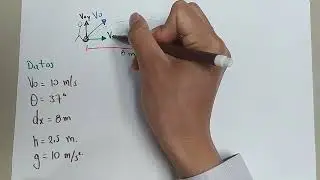 Voy Vo
V
8m
Datos
Vo = 10 m/s
θ = 37°
dx = 8m
h = 2,5 m.
g = 10 m/s²